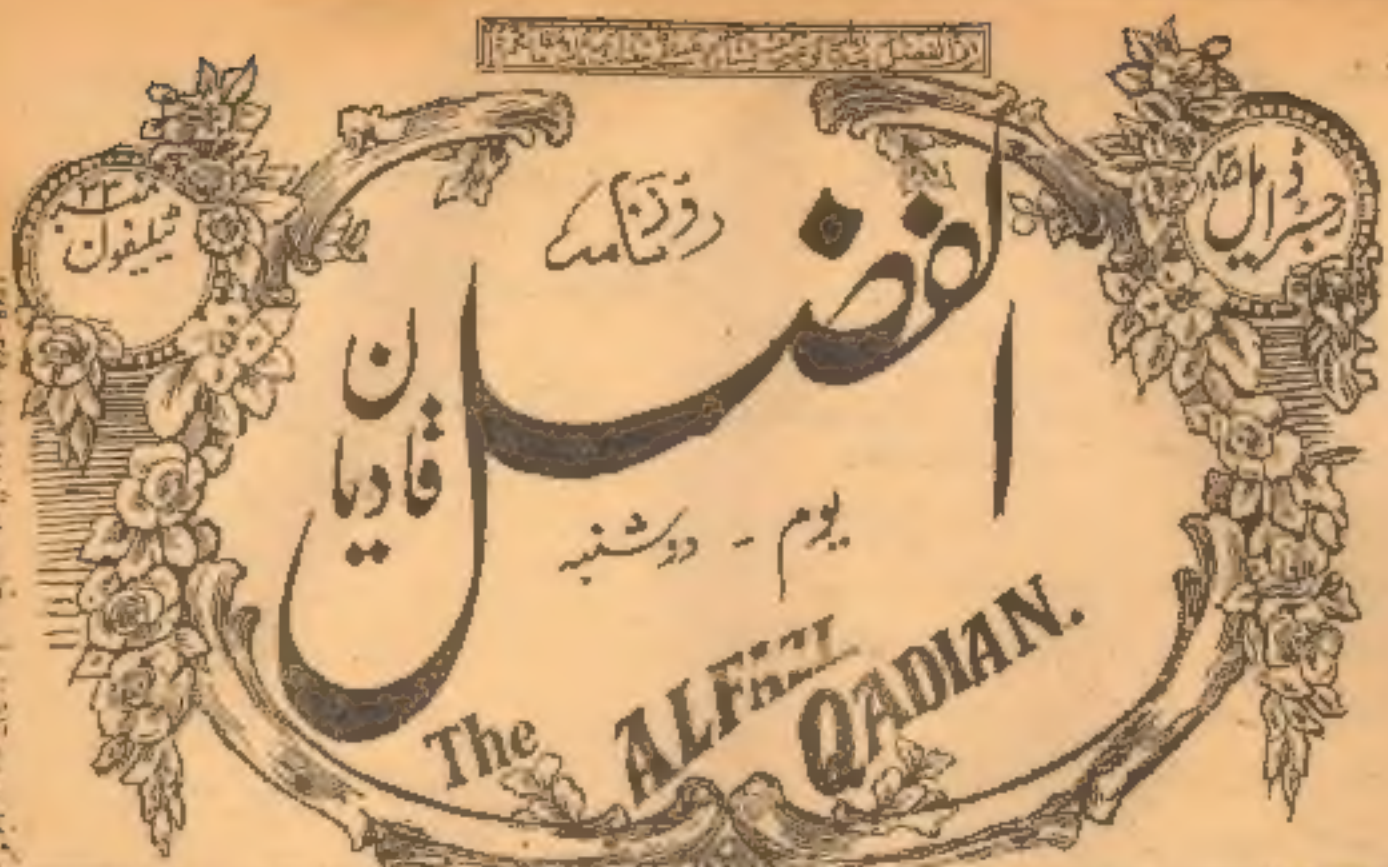 رجسٹرڈ ایل
ٹیلیفون نمبر ۳۳
روزنامہ
الفضل
قادیان
یوم - دوشنبہ
The ALFAZL QADIAN.